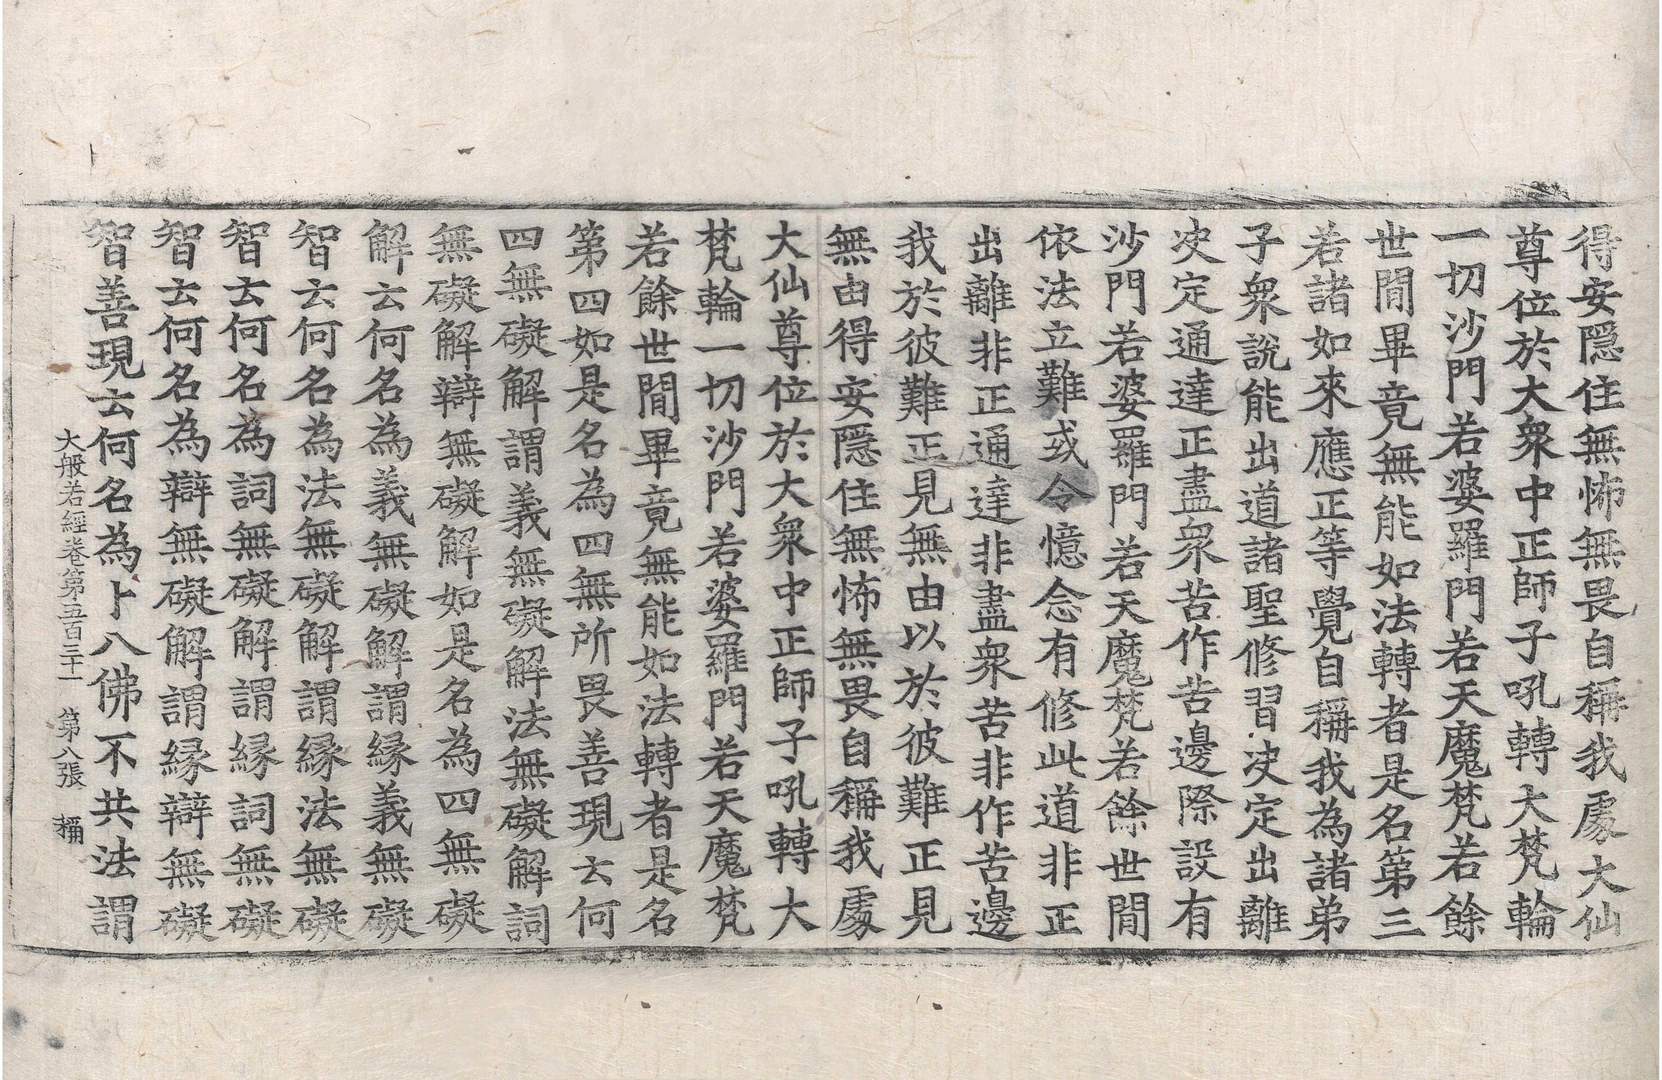 得安隱住無怖無畏自稱我處大仙
尊位於大衆中正師子吼轉大梵輪
一切沙門若婆羅門若天魔梵若餘
世間畢竟無能如法轉者是名第三
若諸如來應正等覺自稱我為諸弟
子衆說能出道諸聖修習决定出離
决定通達正盡衆苦作苦邊際設有
沙門若婆羅門若天魔梵若餘世間
依法立難或令憶念有修此道非正
出離非正通達非盡衆苦非作苦邊
我於彼難正見無由以於彼難正見
無由得安隱住無怖無畏自稱我處
大仙尊位於大衆中正師子吼轉大
梵輪一切沙門若婆羅門若天魔梵
若餘世間畢竟無能如法轉者是名
第四如是名為四無所畏善現云何
四無礙解謂義無礙解法無礙解詞
無礙解辯無礙解如是名為四無礙
解云何名為義無礙解謂緣義無礙
智云何名為法無礙解謂緣法無礙
智云何名為詞無礙解謂緣詞無礙
智云何名為辯無礙解謂緣辯無礙
智善現云何名為十八佛不共法謂
大般若經卷第五百三十一 第八張 稱